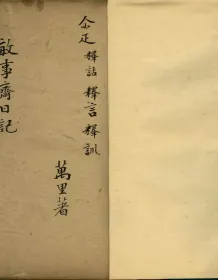 仝疋釋詁釋言釋訓
萬里著
敏事齋日記